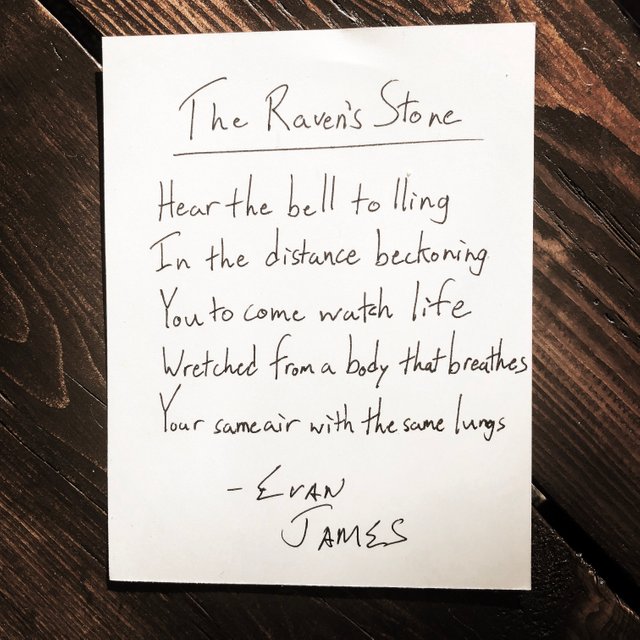 The Raven's Stone
Hear the bell tolling
In the distance beckoning
You to come watch life
Wretched from a body that breathes
Your same air with the same lungs
- Evan
James